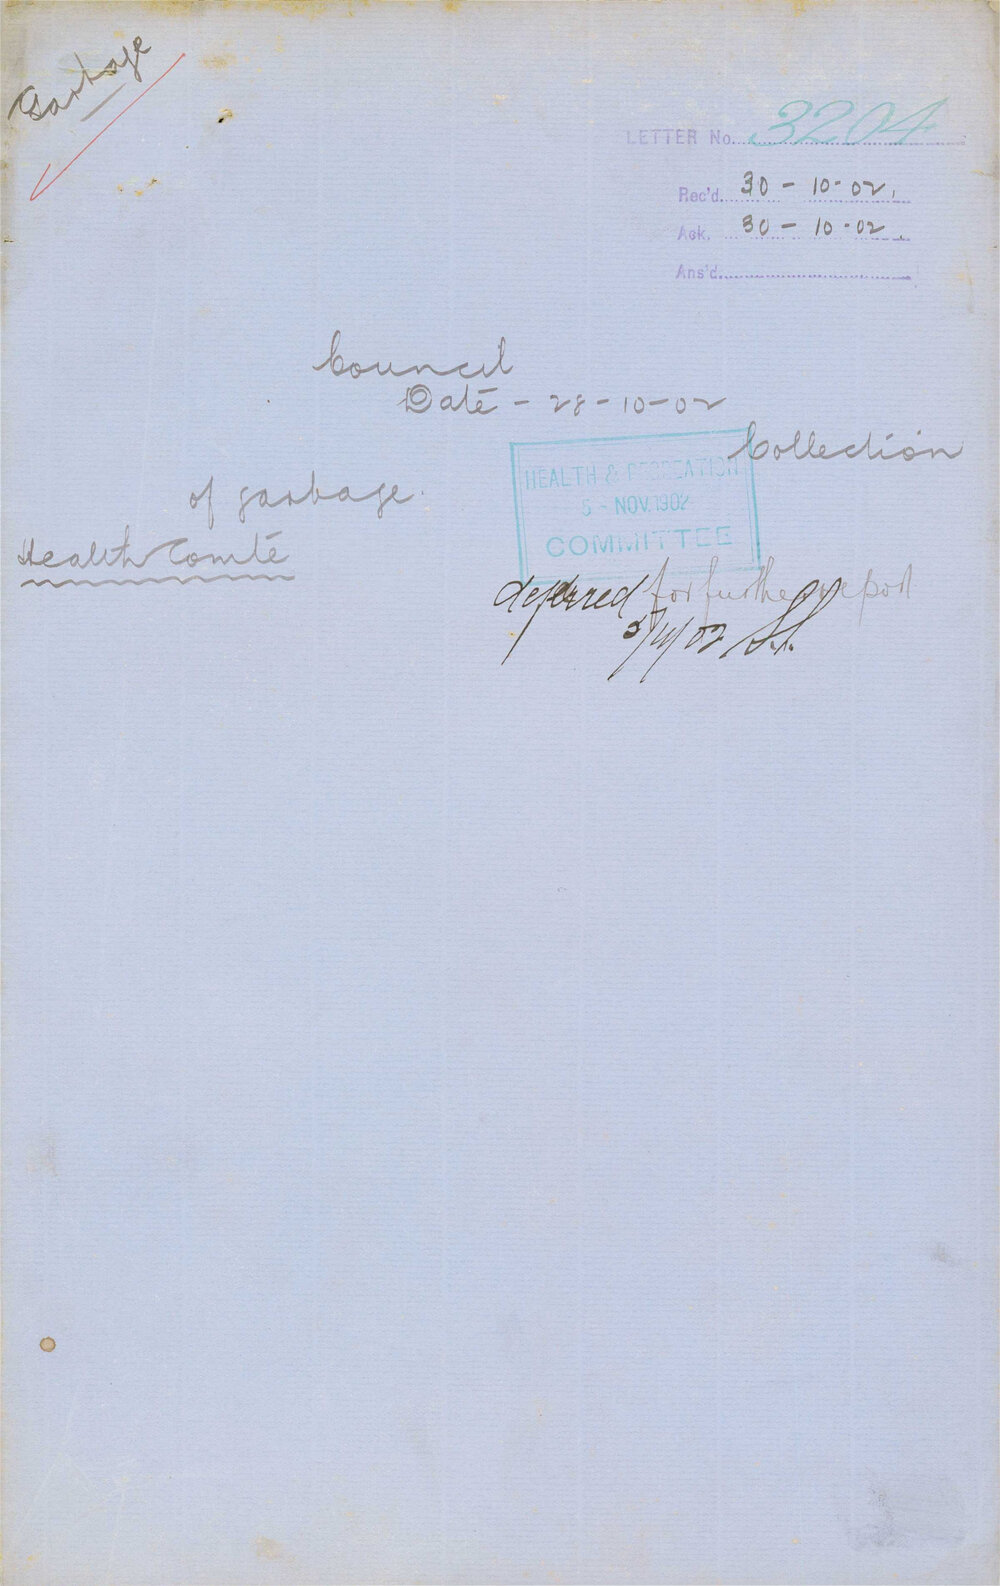 Garbage
LETTER No. 3204
Rec'd. 30-10-02.
Ack. 30-10-02.
Ans'd.
Council
Date - 28-10-02
Collection
of garbage.
HEALTH & RECREATION
5 - NOV. 1902
COMMITTEE
Health Comte
deferred for further report
5/11/02